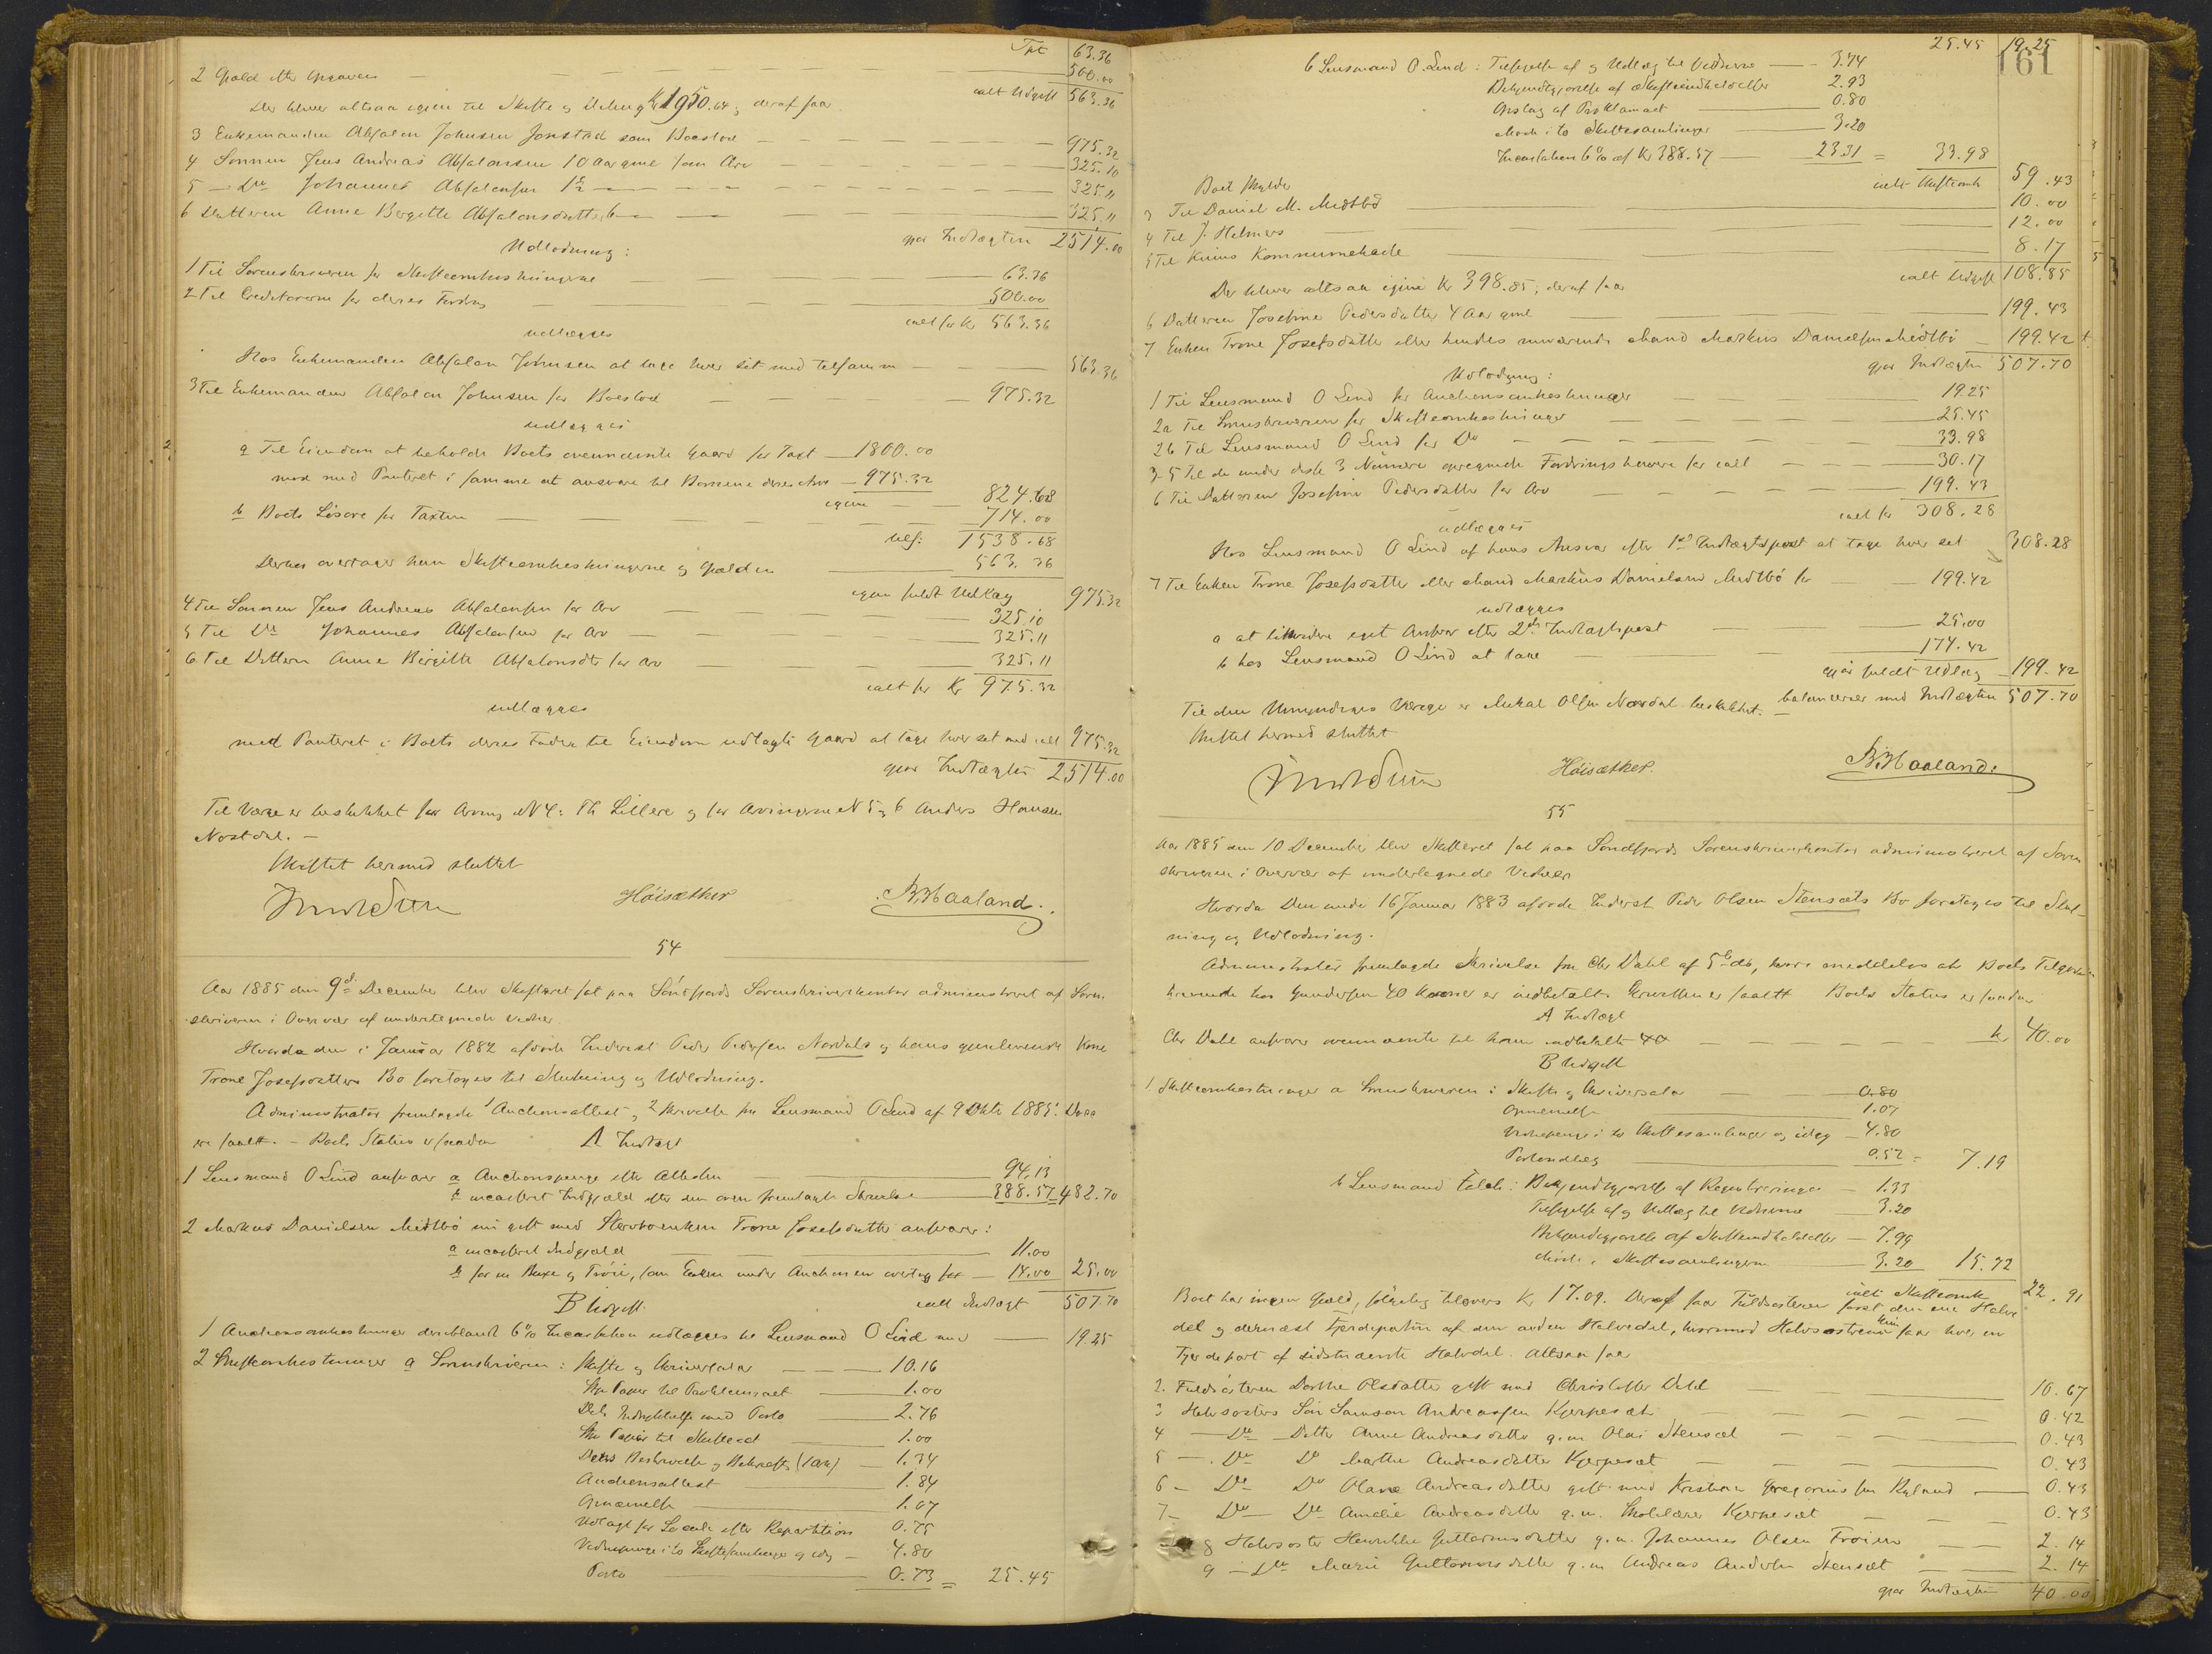 Tpt 63.36
2 Gjæld efter Opgaven — 500.00
ialt Udgift 563.36
Der bliver altsaa igjen til Skifte og Deling Kr 1950.64, deraf faar
3 Enkemanden Absalon Johnsen Jonstad som Boeslod — 975.32
4 Sønnen Jens Andreas Absalonsen 10 Aar gml som Arv — 325.10
5 — Do Johannes Absalonsen — 325.11
6 Datteren Anne Bergitte Absalonsdatter 6 — 325.11
gjør Indtægten 2514.00
Udlodning:
1 Til Sorenskriveren for Skifteomkostningerne — 63.36
2 Til Creditorerne for deres Fordring — 500.00
ialt for Kr 563.36
udlægges
Hos Enkemanden Absalon Johnsen at tage hver sit med tilsammen — 563.36
3 Til Enkemanden Absalon Johnsen for Boeslod — 975.32
udlægges
a Til Eiendom at beholde Boets ovennævnte Gaard for Taxt — 1800.00
mod med Panteret i samme at ansvare til Børnene deres Arv — 975.32
igjen — 824.68
b Boets Løsøre for Taxten — 714.00
tils: 1538.68
Derhos overtager han Skifteomkostningerne og Gjælden — 563.36
igjen fuldt Udlæg 975.32
4 Til Sønnen Jens Andreas Absalonsen for Arv — 325.10
5 Til Do Johannes Absalonsen for Arv — 325.11
6 Til Dattern Anne Birgitte Absalonsdtr for Arv — 325.11
ialt for Kr 975.32
udlægges
med Panteret i Boets deres Fader til Eiendom udlagte Gaard at tage hver sit med ialt 975.32
gjør Indtægten 2514.00
Til Værge er beskikket for Arving N 4: Th Lillere og for Arvingerne N 5 og 6 Anders Hansen
Nostdal. —
Skiftet hermed sluttet
Høisæther B. Haaland.
54
Aar 1885 den 9de December blev Skifteret sat paa Søndfjords Sorenskriverkontor administreret af Soren-
skriveren i Overvær af undertegnede Vidner.
Hvorda den i Januar 1882 afdøde Inderst Peder Pedersen Nordals og hans gjenlevende Kone
Trone Josefsdatters Bo foretoges til Slutning og Udlodning.
Administrator fremlagde 1 Auctionsattest, 2 Skrivelse fra Lensmand O Lind af 9 Okt 1885.
er saalt. — Boets Status er saadan A Indtægt
1 Lensmand O Lind ansvarer a Auctionspenge efter Attesten — 94.13
b incasseret Indgjæld efter den oven fremlagte Skrivelse 388.57 = 482.70
2 Markus Danielsen Midtbø nu gift med Stervboenken Trone Josefsdatter ansvarer:
a incasseret Indgjæld — 11.00
b for en Buxe og Trøie, som Enken under Auctionen overtog for — 14.00 25.00
ialt Indtægt 507.70
B Udgift.
1 Auctionsomkostninger deriblandt 6% Incassation udlægges til Lensmand O Lind med — 19.25
2 Skifteomkostninger a Sorenskriveren: Skifte og Skriversalær — 10.16
Stp Papir til Proklamaet — 1.00
Dets Indrykkelse med Porto — 2.76
Stp Papir til Skifteact — 1.00
Dens Beskrivelse og Bekræft. (1 Ark) — 1.34
Auctionsattest — 1.84
Opnævnelse — 1.07
Udlagt for Locale efter Repartition 0.75
Vidnepenge i to Skiftesamlinger og idag — 4.80
Porto — 0.73 = 25.45
161
25.45 19.25
b Lensmand O. Lind: Tilsigelse af og Udlæg til Vidnerne — 3.74
Bekjendtgjørelse af Skifteindkaldelse 2.93
Opslag af Proklamaet — 0.80
Møde i to Skiftesamlinger — 3.20
Incassation 6% af Kr 388.57 — 23.31 = 33.98
ialt Skifteomk 59.43
Boet skylder
3 Til Daniel M. Midtbø — 10.00
4 Til J. Helmers — 12.00
5 Til Kinns Kommunekasse — 8.17
ialt Udgift 108.85
Der bliver altsaa igjen Kr 398.85, deraf faar
6 Datteren Josefine Pedersdatter 4 Aar gml — 199.43
7 Enken Trone Josefsdatter eller hendes nuværende Mand Markus Danielsen Midtbø — 199.42
gjør Indtægten 507.70
Udlodning:
1 Til Lensmand O Lind for Auctionsomkostninger — 19.25
2a Til Sorenskriveren for Skifteomkostninger — 25.45
2b Til Lensmand O Lind for Do — 33.98
3-5 Til de under disse 3 Numere opregnede Fordringshavere for ialt — 30.17
6 Til Datteren Josefine Pedersdatter for Arv — 199.43
ialt for 308.28
udlægges
Hos Lensmand O Lind af hans Ansvar efter 1ste Indtægtspost at tage hver sit 308.28
7 Til Enken Trone Josefsdatter eller Mand Markus Danielsen Midtbø for — 199.42
udlægges
a at likvidere eget Ansvar efter 2den Indtægtspost — 25.00
b hos Lensmand O Lind at tage — 174.42
gjør fuldt Udlæg — 199.42
balancerer med Indtægten 507.70
Til den Umyndiges Værge er Mikal Olsen Nordal beskikket.
Skiftet hermed sluttet
Høisæther. B. Haaland.
55
Aar 1885 den 10 December blev Skifteret sat paa Søndfjords Sorenskriverkontor administreret af Soren
skriveren i Overvær af undertegnede Vidner
Hvorda den under 16 Januar 1883 afdøde Inderst Peder Olsen Stensæts Bo foretoges til Slut-
ning og Udlodning.
Administrator fremlagde Skrivelse fra Chr Dahl af 5te ds, hvori meddeles at Boets Tilgode-
havende hos Gundersen 40 Kroner er indbetalt. Skrivelsen er saalt Boets Status er saadan
A Indtægt
Chr Dahl ansvarer ovennævnte til ham indbetalt 40 — kr 40.00
B Udgift
1 Skifteomkostninger a Sorenskriveren: Skifte og Skriversalær — 0.80
Opnævnelse — 1.07
Vidnepenge i to Skiftesamlinger og idag — 4.80
Portoudlæg — 0.52 = 7.19
b Lensmand: Bekjendtgjørelse af Registreringen — 1.33
Tilsigelse af og Udlæg til Vidnerne — 3.20
Bekjendtgjørelse af Skifteindkaldelse — 7.99
Møde i Skiftesamlingerne — 3.20 15.72
ialt Skifteomk 22.91
Boet har ingen Gjæld, følgelig tilovers Kr 17.09. Deraf faar Fuldsøsteren først den ene Halv-
del og dernæst Fjerdeparten af den anden Halvedel, hvorimod Halvsøstrene kun faar hver en
Fjerdepart af sidstnævnte Halvdel. Altsaa faar
2. Fuldsøsteren Dorthe Olsdatter gift med Christoffer Dahl — 10.67
3 Halvsøsters Søn Samson Andreassen Kjerpesæt — 0.42
4 — Do — Datter Anne Andreasdatter g.m. Olai Stensæt — 0.43
5 — Do Do Marthe Andreasdatter Kjerpesæt — 0.43
6 — Do Do Olave Andreasdatter gift med Kristian Gregoriussen Ryland — 0.43
7 — Do — Do Amalie Andreasdatter g.m. Kjerpesæt — 0.43
8 Halvsøster Henrikke Guttormsdatter g.m. Johannes Olsen Frøien — 2.14
9 — Do Marie Guttormsdatter g.m. Andreas Andersen Stensæt — 2.14
gjør Indtægten 40.00